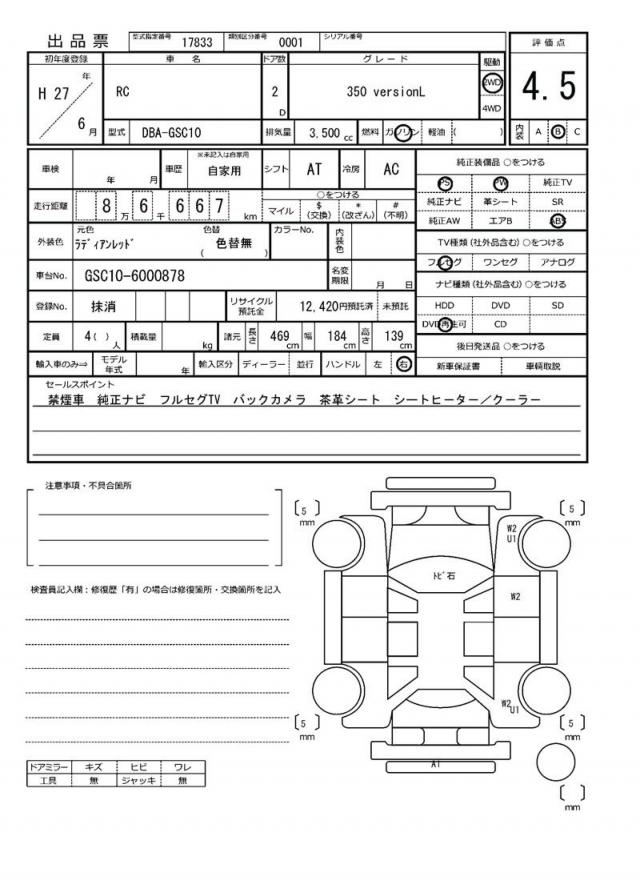 出品票 型式指定番号 17833 類別区分番号 0001 シリアル番号
初年度登録 車名 ドア数 グレード 駆動 評価点
H 27 年 6 月 RC 2 D 350 versionL 2WD 4WD 4.5
型式 DBA-GSC10 排気量 3,500 cc 燃料 ガソリン 軽油 ( ) 内装 A B C
車検 年 月 車歴 ※未記入は自家用 自家用 シフト AT 冷房 AC
純正装備品 ○をつける
PS PW 純正TV
純正ナビ 革シート SR
純正AW エアB ABS
走行距離 8 万 6 千 6 6 7 km ○をつける マイル $ (交換) * (改ざん) # (不明)
外装色 元色 ラディアンレッド 色替 ( 色替無 ) カラーNo. 内装色
TV種類 (社外品含む) ○をつける
フルセグ ワンセグ アナログ
車台No. GSC10-6000878 名変期限 月 日
ナビ種類 (社外品含む) ○をつける
HDD DVD SD
DVD再生可 CD
登録No. 抹消 リサイクル預託金 12,420円預託済 未預託
定員 4( ) 人 積載量 kg 諸元 長さ 469 cm 幅 184 cm 高さ 139 cm
後日発送品 ○をつける
新車保証書 車輌取説
輸入車のみ⇒ モデル年式 年 輸入区分 ディーラー 並行 ハンドル 左 右
セールスポイント
禁煙車 純正ナビ フルセグTV バックカメラ 茶革シート シートヒーター/クーラー
注意事項・不具合箇所
検査員記入欄:修復歴「有」の場合は修復箇所・交換箇所を記入
[ 5 ] mm
[ 5 ] mm
W2
U1
トビ石
W2
W2
U1
[ 5 ] mm
[ 5 ] mm
A1
[ ] mm
ドアミラー キズ ヒビ ワレ
工具 無 ジャッキ 無